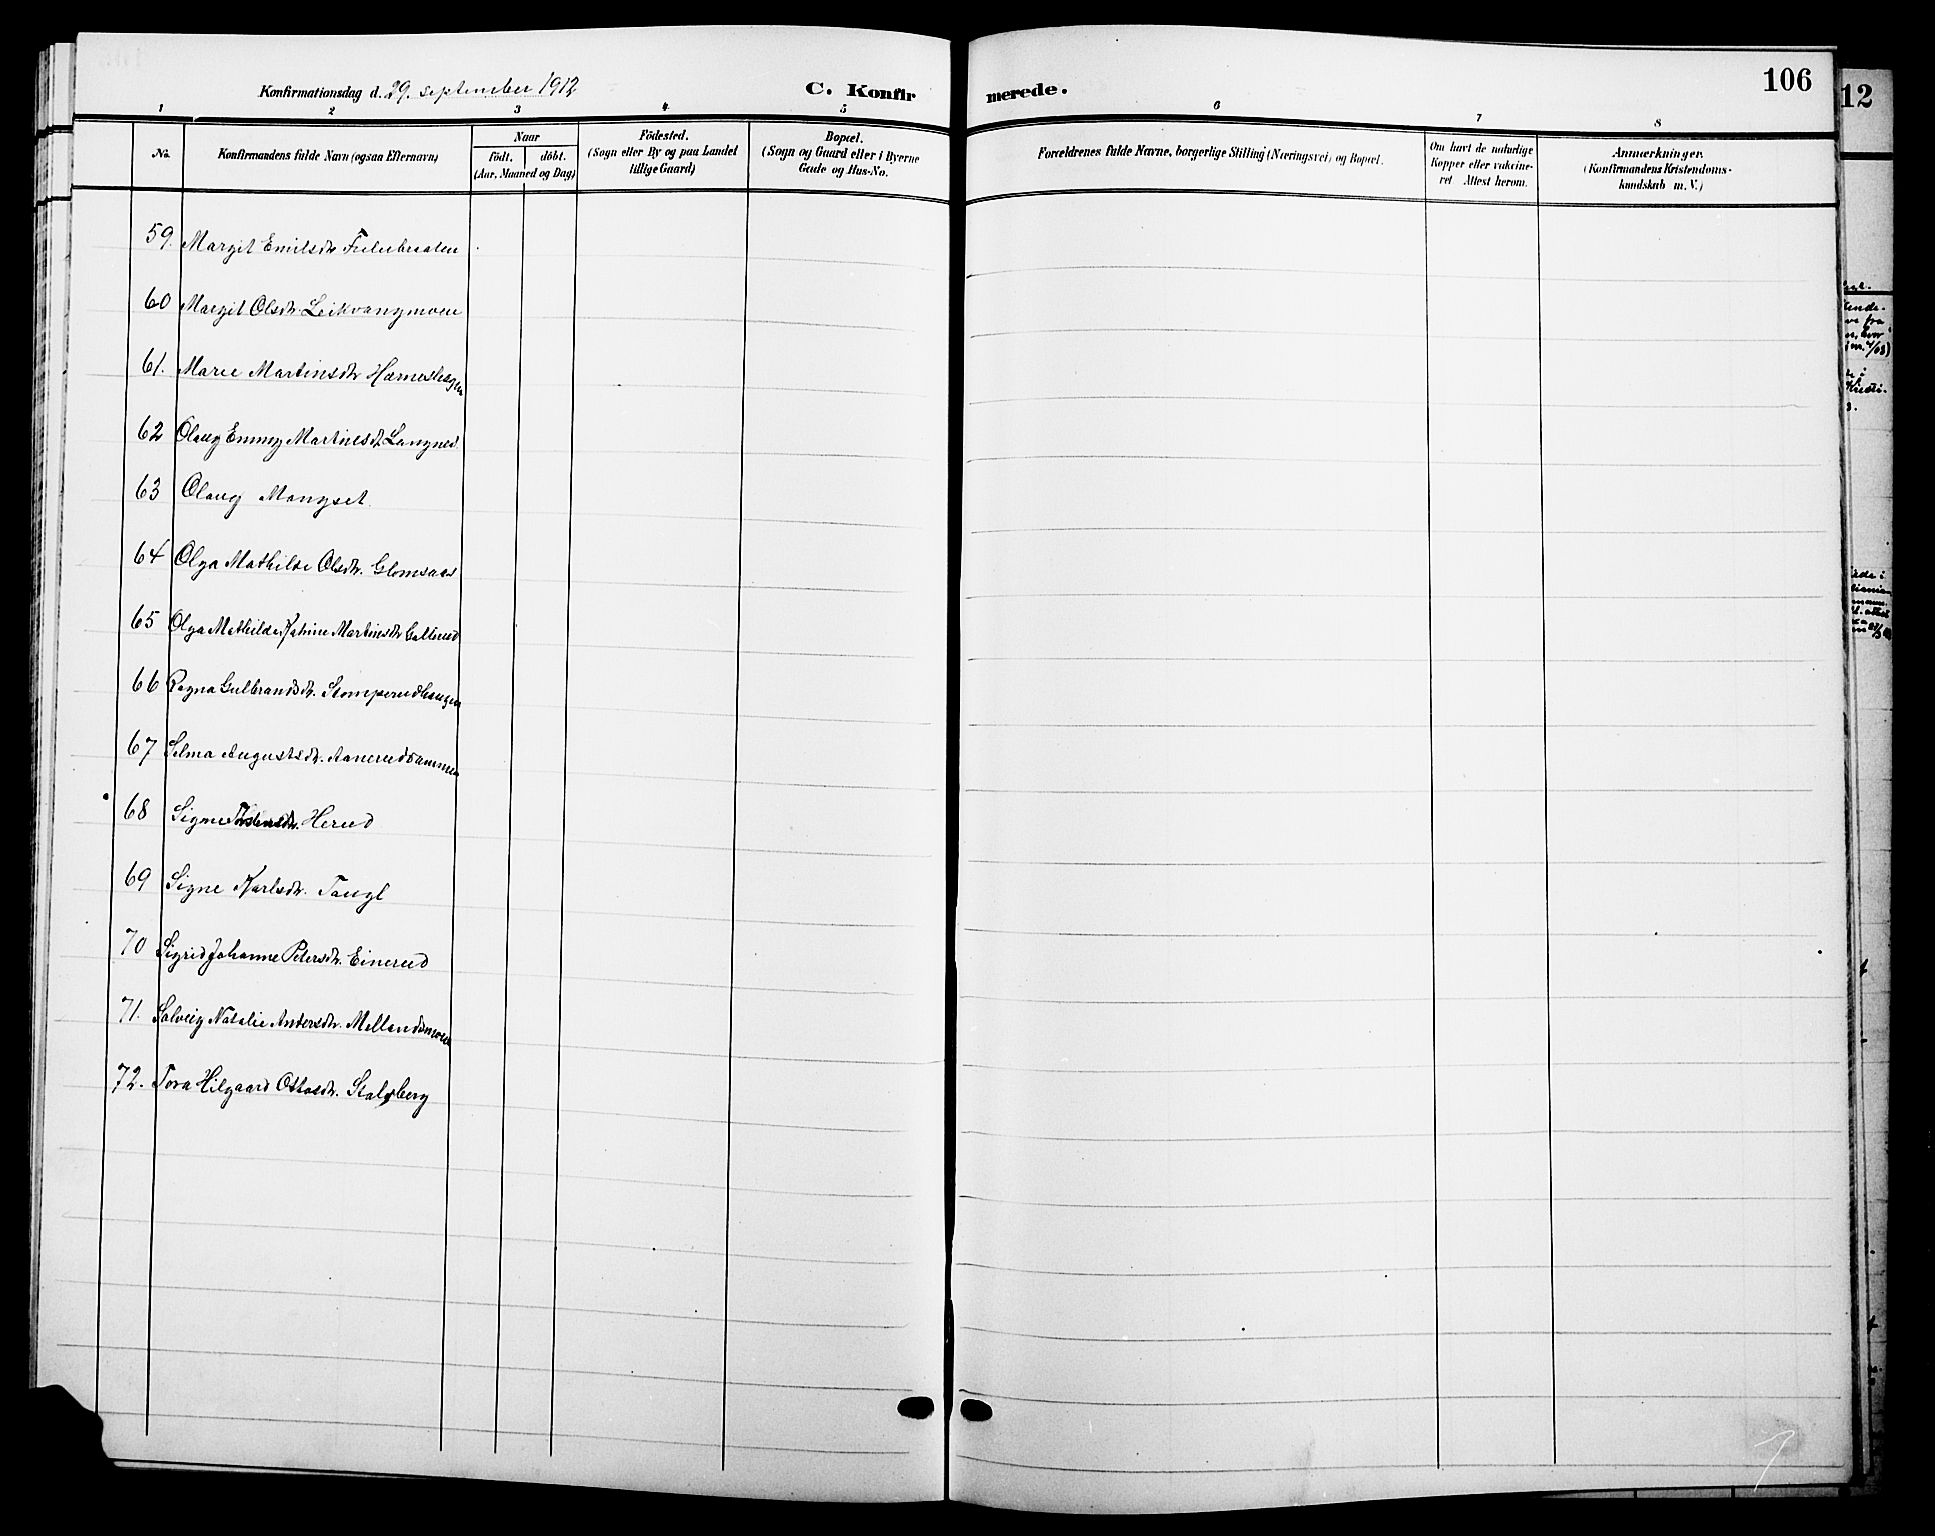 Konfirmationsdag d. 29. september 1912
C. Konfir
merede.
106
12
1 2 3 4 5 6 7 8
No.
Konfirmandens fulde Navn (ogsaa Efternavn)
Naar
født. døbt.
(Aar, Maaned og Dag)
Fødested.
(Sogn eller By og paa Landet
tillige Gaard)
Bopæl.
(Sogn og Gaard eller i Byerne
Gade og Hus-No.
Forældrenes fulde Navne, borgerlige Stilling (Næringsvei) og Bopæl.
Om havt de naturlige
Kopper eller vaksine-
ret. Attest herom.
Anmærkninger.
(Konfirmandens Kristendoms-
kundskab m. V.)
59. Margit Emilsdtr
60 Margit Olsdtr. Leikvangmoen
61. Marie Martinsdtr Hærneshagen
62 Olaug Emmy Martinsdtr Langnes
63 Olaug Mangset.
64 Olga Mathilde Olsdtr. Glomsaas
65 Olga Mathilde Katrine Martinsdtr Gallerud
66 Ragna Gulbrandsdtr. Stomperudhaugen
67 Selma Augustsdtr. Aanerudsammen
68 Signe Herud
69 Signe Karlsdtr. Taugl
70 Sigrid Johanne Petersdtr. Einerud
71. Solveig Natalie Andersdtr. Mellandsmoen
72. Tora Hilgaard Ottosdtr. Stalsberg